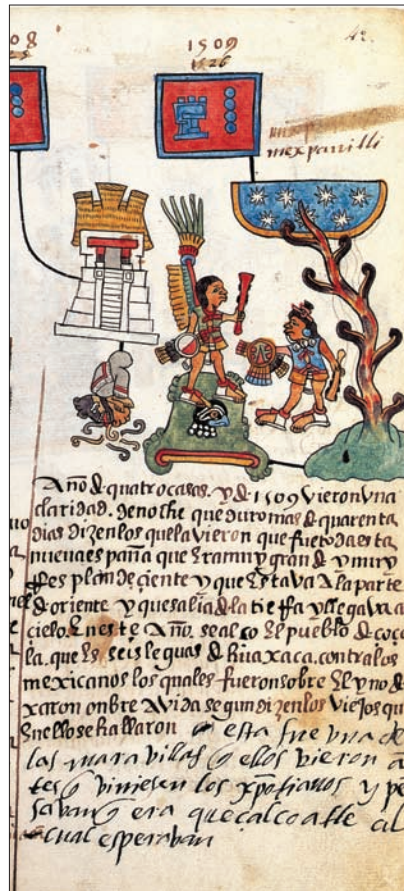 08
1509
1526
42.
mexpanitli
Año d quatro casas. y d 1509 vieron vna
claridad. de noche que duro mas d quarenta
dias dizen los que la vieron que fue toda esta
nueua españa que Era muy gran d y muy
Res plandeciente y que Estava A la parte
d oriente y que salia d la tierra y llegava a
cielo. En este Año. se alço El pueblo d coço
la. que Es seis leguas d huaxaca. contra los
mexicanos los quales fueron sobre El y no d
xaron onbre A vida segun dizen los viejos qu
En ello se hallaron esta fue vna de
las maravillas q ellos vieron a
tes q viniesen los xpotianos y pe
savan q era queçalcoatle al
cual esperaban